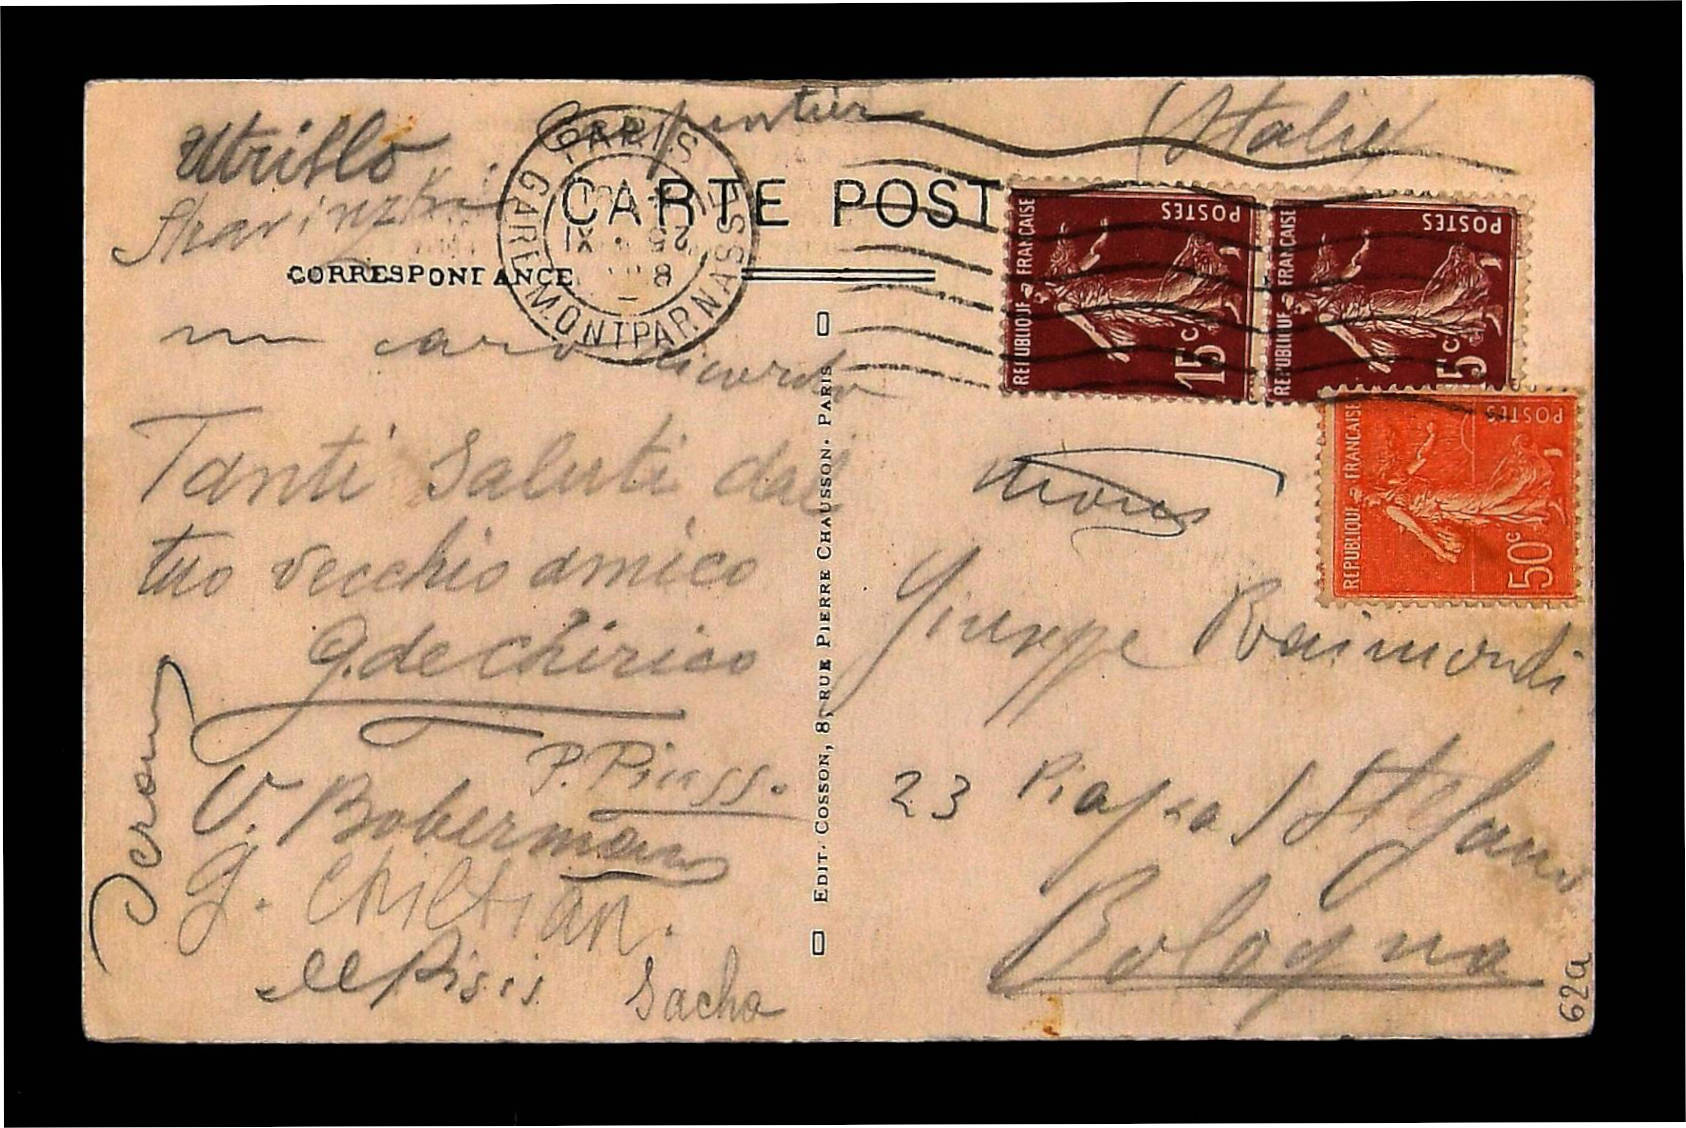 Utrillo
Carpentier
(Italie)
CARTE POST
CORRESPONDANCE
PARIS
GARE MONTPARNASSE
un caro ricordo
Tanti Saluti dal
tuo vecchio amico
G. de Chirico
P. Picasso
V. Boberman
G. Chiltian.
de Pisis
Sacha
Derain
EDIT. COSSON, 8, RUE PIERRE CHAUSSON. PARIS
REPUBLIQUE FRANCAISE
POSTES
15c
REPUBLIQUE FRANCAISE
POSTES
15c
REPUBLIQUE FRANCAISE
POSTES
50c
Giuseppe Raimondi
23 Piazza S Stefano
Bologna
62a